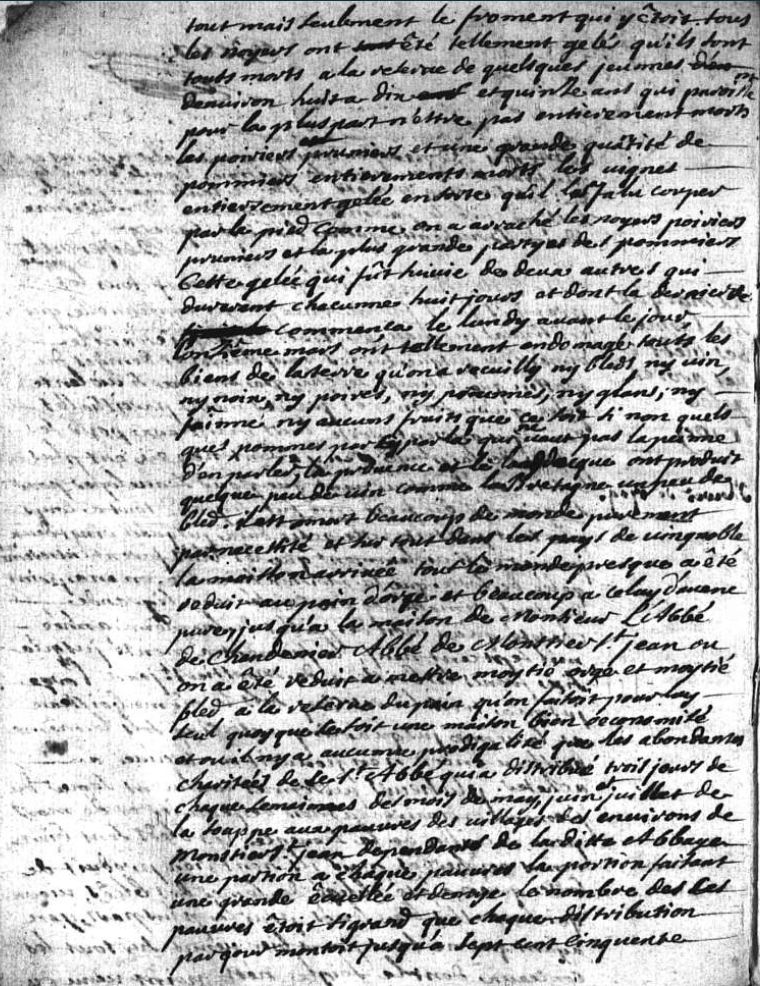 tout mais seulement le froment qui y étoit. tous
les noyers ont été tellement gelés qu'ils sont
touts morts a la reserve de quelques jeunes
denviron huit a dix et quinze ans qui paroissent
pour la pluspart n'ettre pas entierement morts
les poiriers pruniers et une grande quatité de
pommiers entierements morts les vignes
entiersement gelée ensorte qu'il les falu couper
par le pied comme on a arraché les noyers poiriers
pruniers et la plus grande partyes des pommiers
Cette gelée qui fût suivie de deux autres qui
durerent chacunne huit jours et dont la derniere
commença le lundy avant le jour
onzieme mars ont tellement endomagé touts les
biens de la terre qu'on a recuilly ny bleds, ny vin,
ny noix, ny poires, ny prunnes, ny glans, ny
faînne ny aucuns fruits que ce soit si non quels
ques pommes par cy par la qui ne vaut pas la peinne
d'en parler, la provence et le ont produit
quelque peu de vin comme la Bretagne un peu de
bled. il est mort beaucoup de monde purement
par necessité et sur tout dans les pays de vingnoble
la moisson arrivée tout le monde presque a été
reduit au pain d'orge et beaucoup a celuy d'avene
pure, jusqu'a la maison de Monsieur L'Abbé
de Chandenier Abbé de Monstier St. Jean ou
on a été reduit a mettre moytié orge et moytié
bled a la reserve du pain qu'on faisoit pour luy
seul quoyque ce soit une maison bien œconomité
et ou il n'y a aucunne prodigalité que les abondantes
charitées de ce Sr. Abbé qui a distribué trois jours de
chaque semainnes des mois de may, juin et juillet de
la souppe aux pauvres des villages des environs de
Monstier St. Jean dependants de laditte Abbaye
une portion a chaque pauvres la portion faisant
une grande écuellée et demye le nombre des
pauvres étoit si grand que chaque distribution
par jour montoit jusqu'a sept cent cinquente